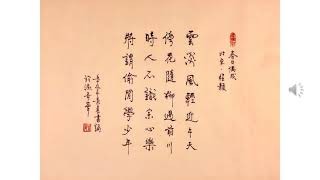 春日偶成
北宋·程顥
雲淡風輕近午天
傍花隨柳過前川
時人不識余心樂
將謂偷閒學少年